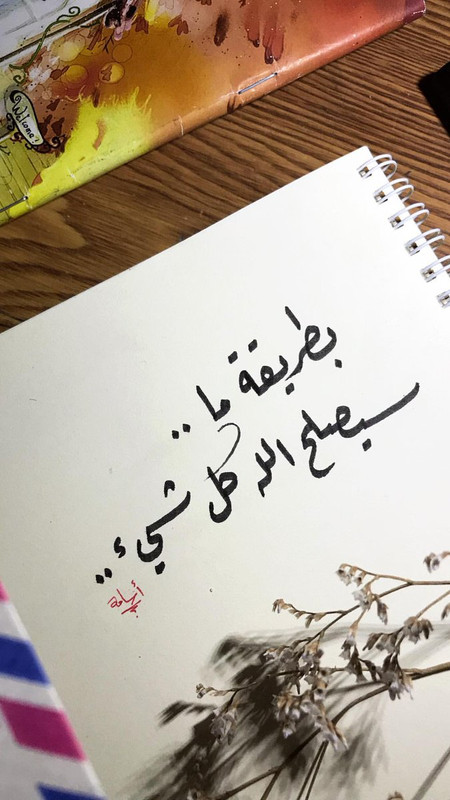 Welcome
بطريقة ما ..
سيصلح الله كل شيء ..
أسامة